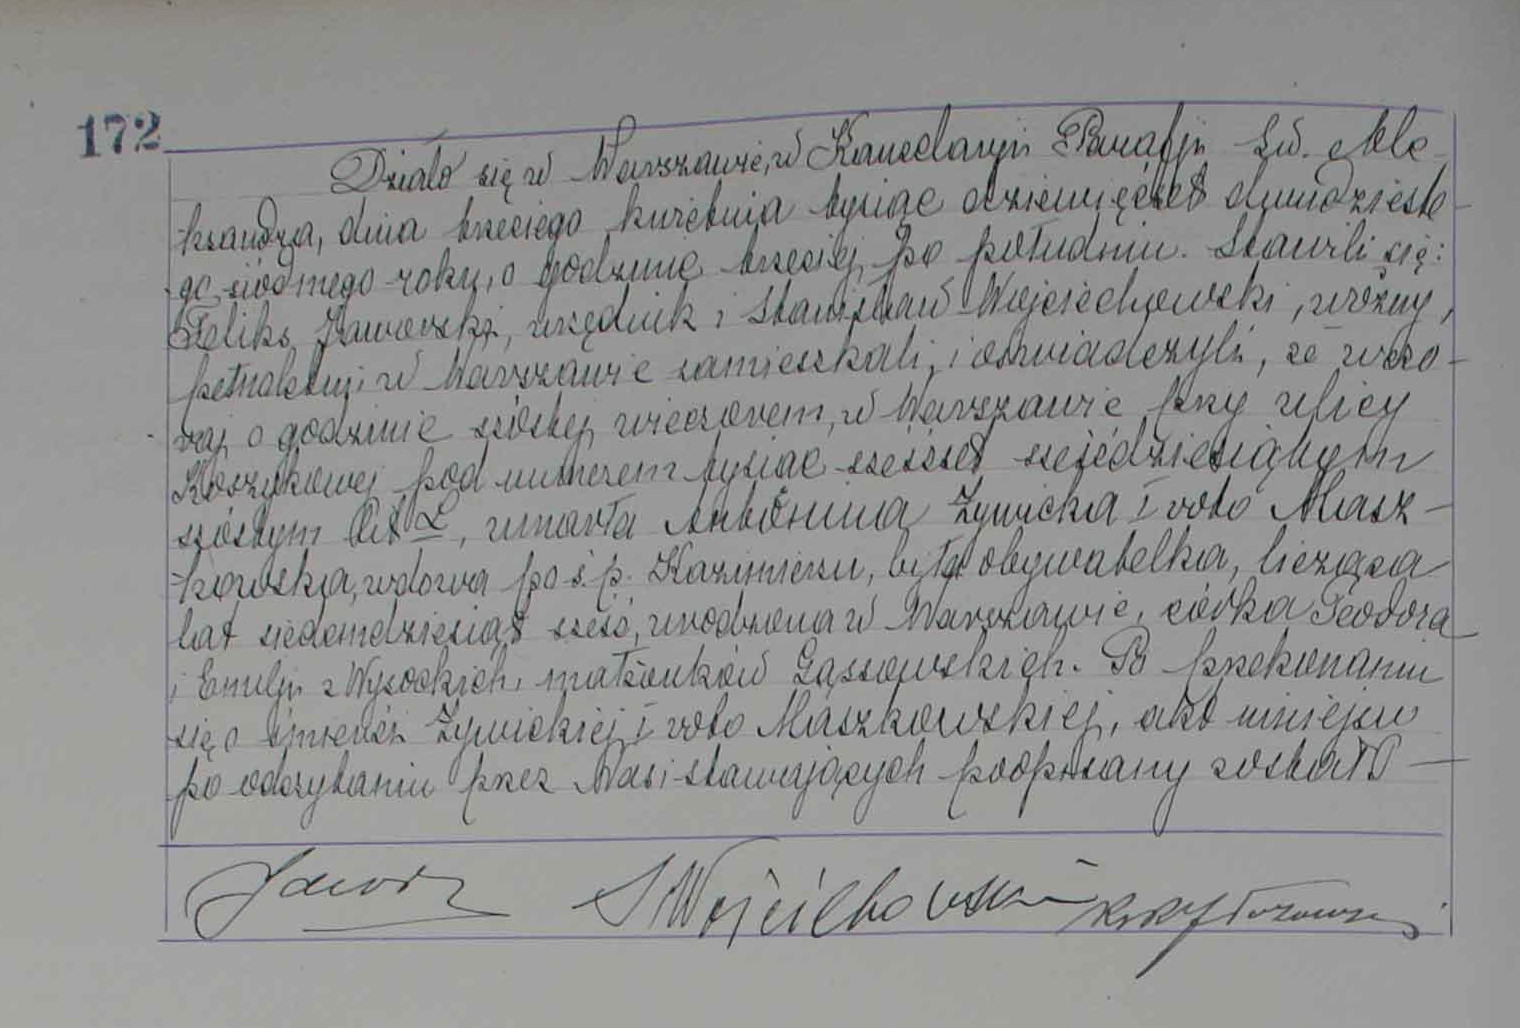 172
Działo się w Warszawie, w Kancelaryi Parafji Św. Ale-
ksandra, dnia trzeciego kwietnia tysiąc dziewięćset dwudzieste-
go siódmego roku, o godzinie trzeciej po południu. Stawili się:
Feliks Jaworski, urzędnik i Stanisław Wojciechowski, woźny,
pełnoletni w Warszawie zamieszkali, i oświadczyli, że wczo-
raj o godzinie szóstej wieczorem, w Warszawie przy ulicy
Koszykowej pod numerem tysiąc sześćset sześćdziesiątym
szóstym lit L, umarła Antonina Żywicka I voto Masz-
kowska, wdowa po ś.p. Kazimierzu, była obywatelka, licząca
lat siedemdziesiąt sześć, urodzona w Warszawie, córka Teodora
i Emilji z Wysockich, małżonków Gąssowskich. Po przekonaniu
się o śmierci Żywickiej I voto Maszkowskiej, akt niniejszy
po odczytaniu przez Nas i stawających podpisany został
SWojciechowski